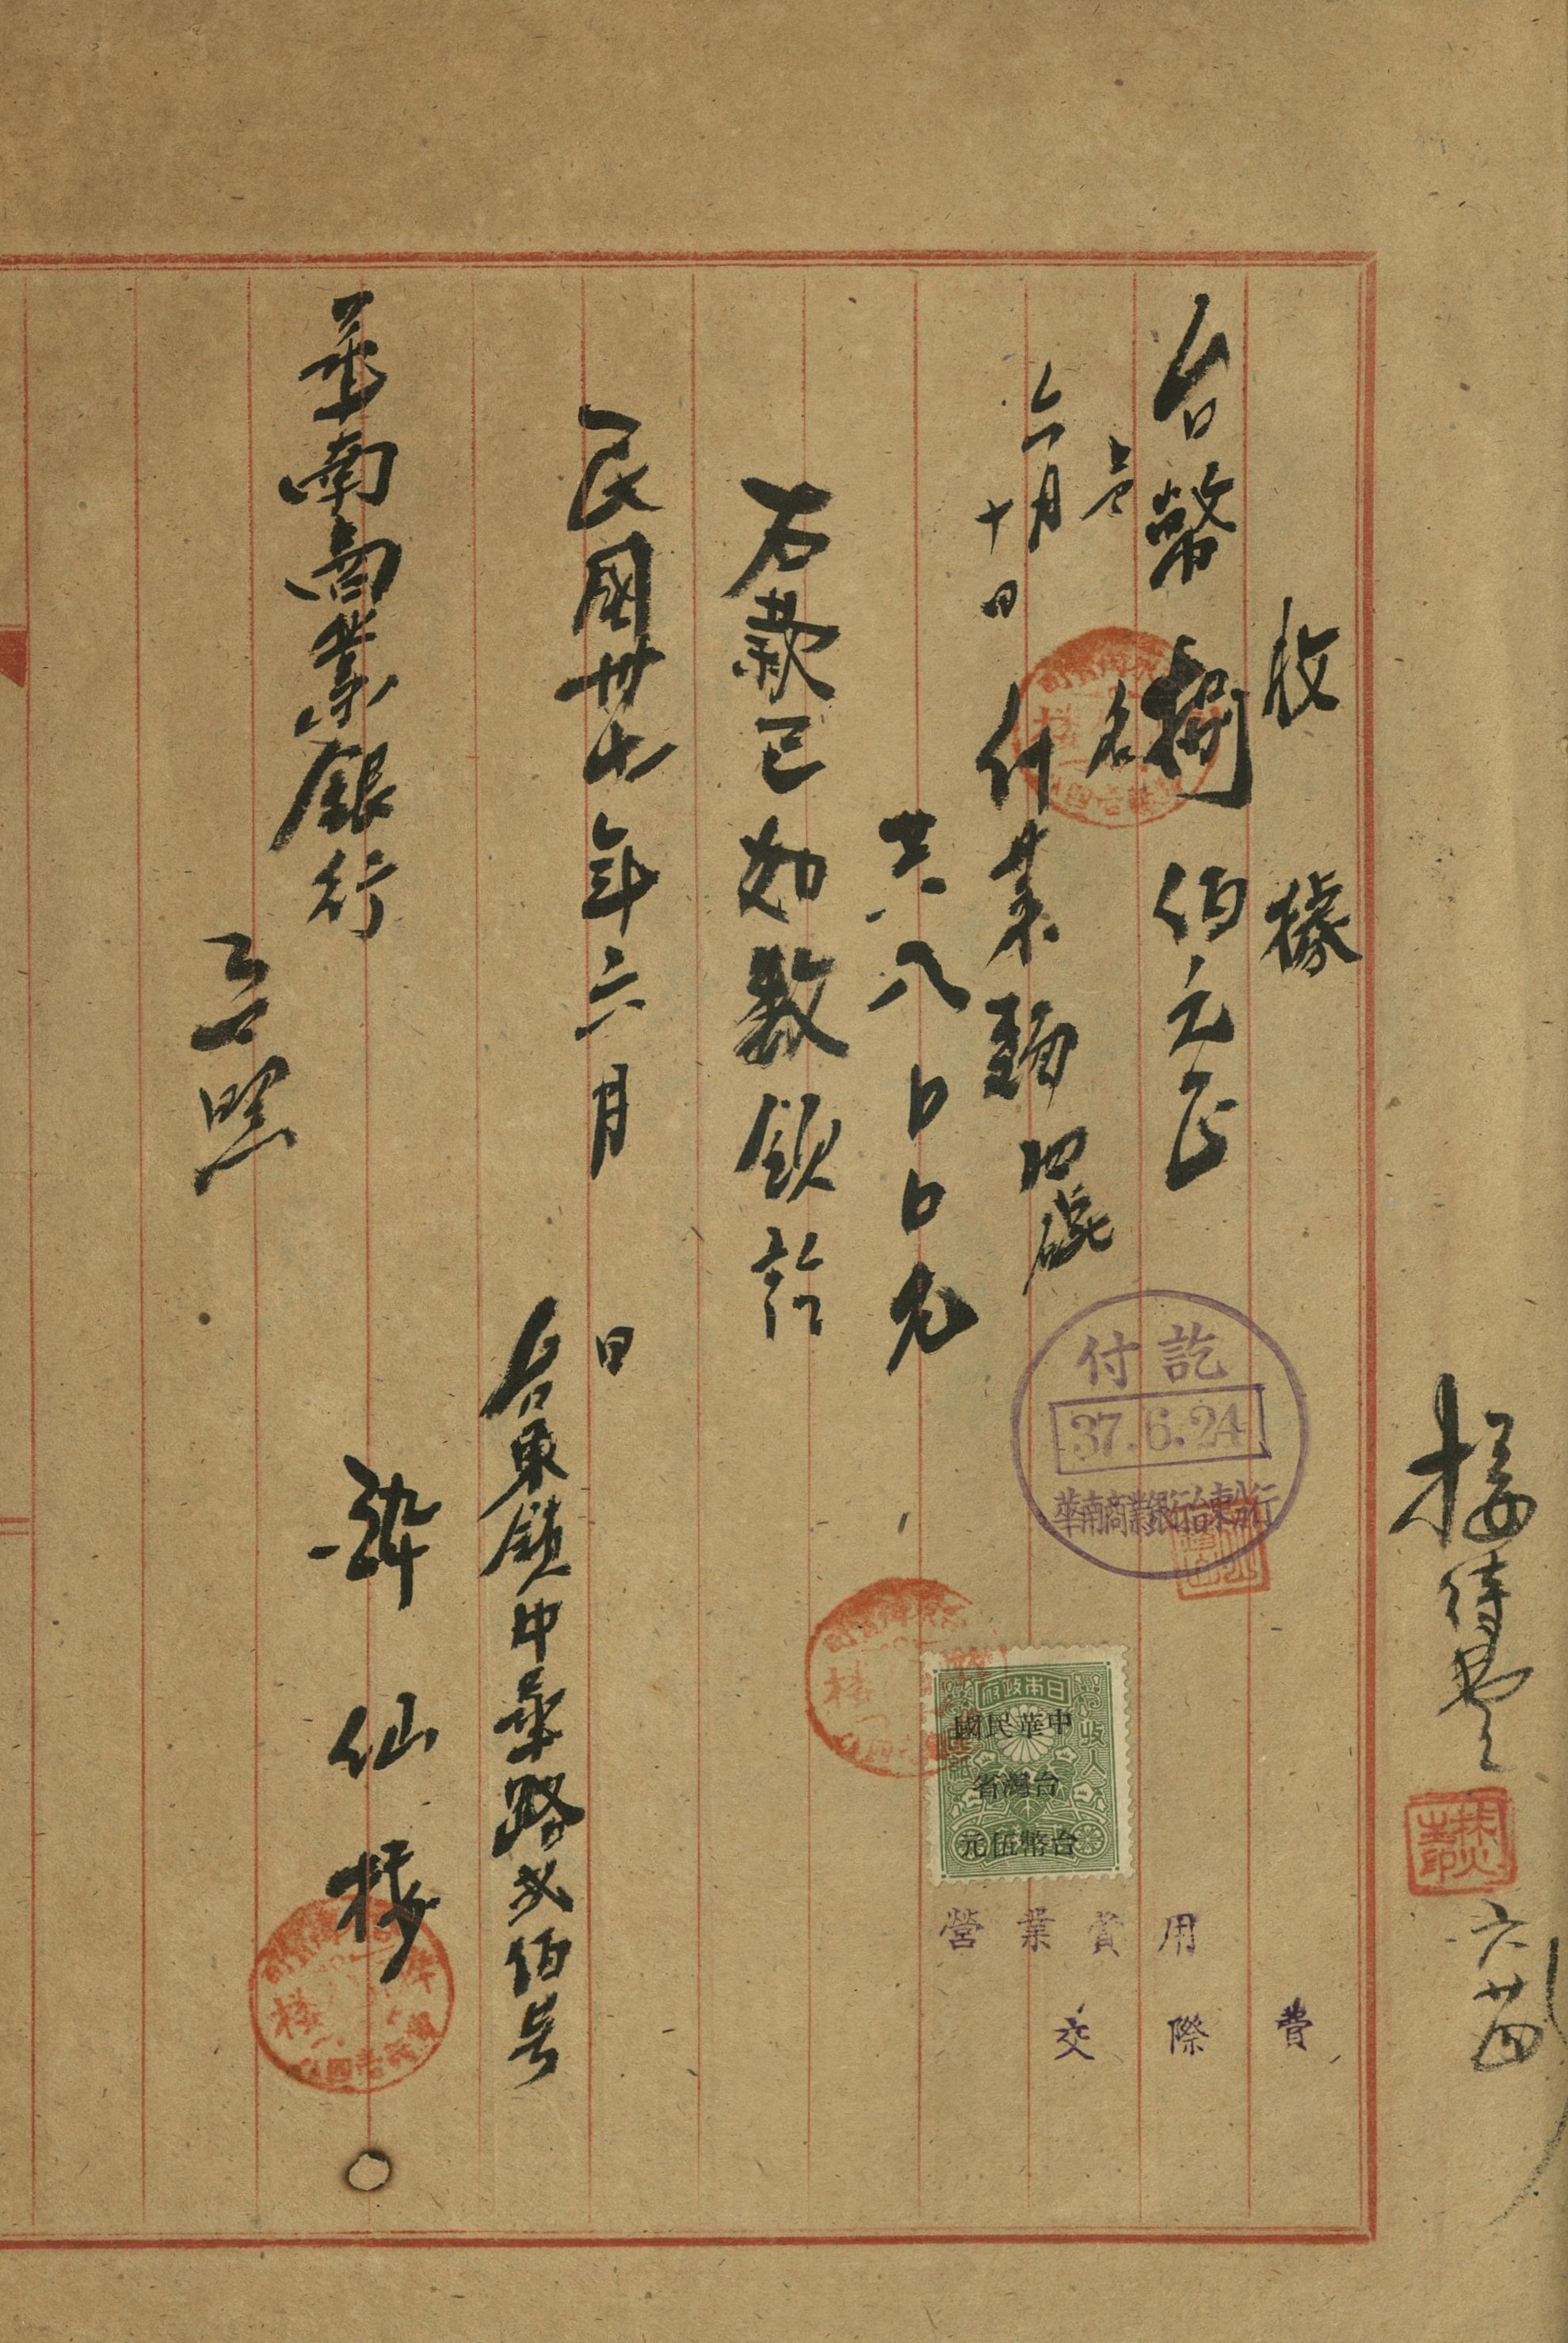 收據
台幣捌佰元正
名
六月十日
什菜麵四碗
共八百百元
右款已如數領訖
民國卅七年六月 日
台東鎮中華路弍佰号
醉仙樓
華南商業銀行
台照
付訖
37.6.24
華南商業銀行台東分行
日本政府
收入印紙
中華民國
台灣省
台幣伍元
營業費用
交際費
接待
六廿四